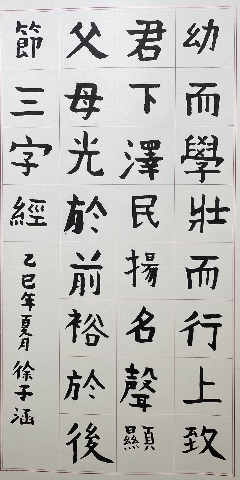 幼而學壯而行上致
君下澤民揚名聲顯
父母光於前裕於後
節三字經
乙巳年夏月徐子涵